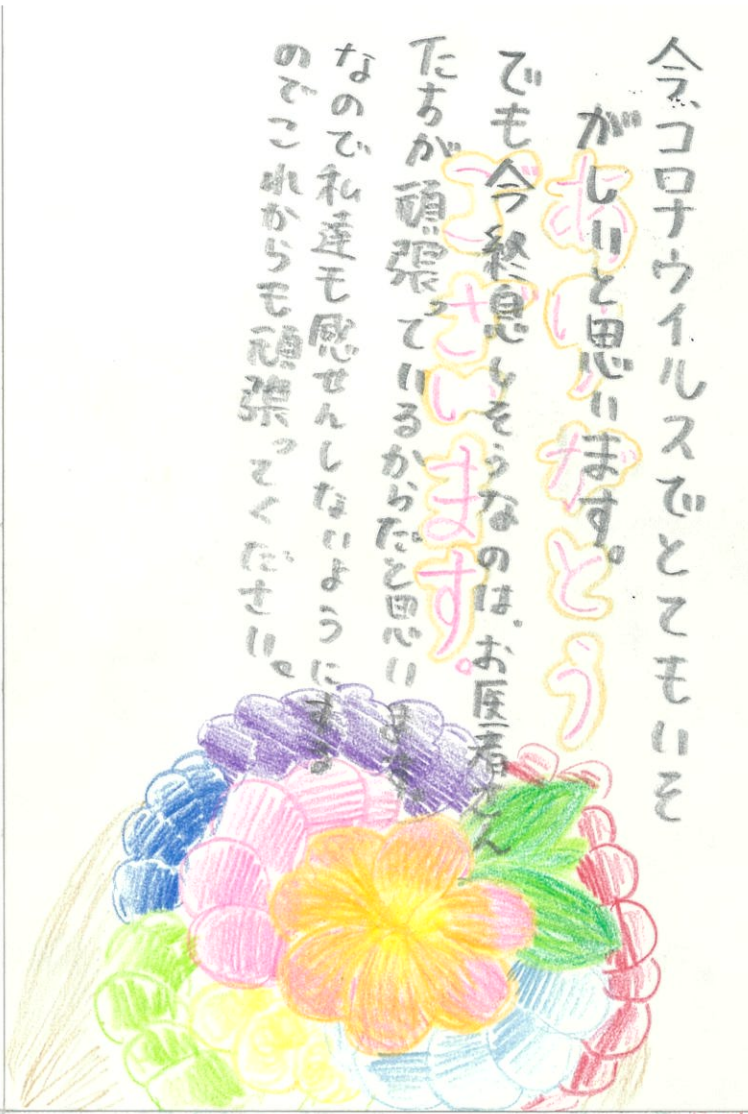 今、コロナウイルスでとてもいそ
がしいと思います。
ありがとう
でも今終息しそうなのは、お医者さん
ございます。
たちが頑張っているからだと思います。
なので私達も感せんしないようにする
のでこれからも頑張ってください。